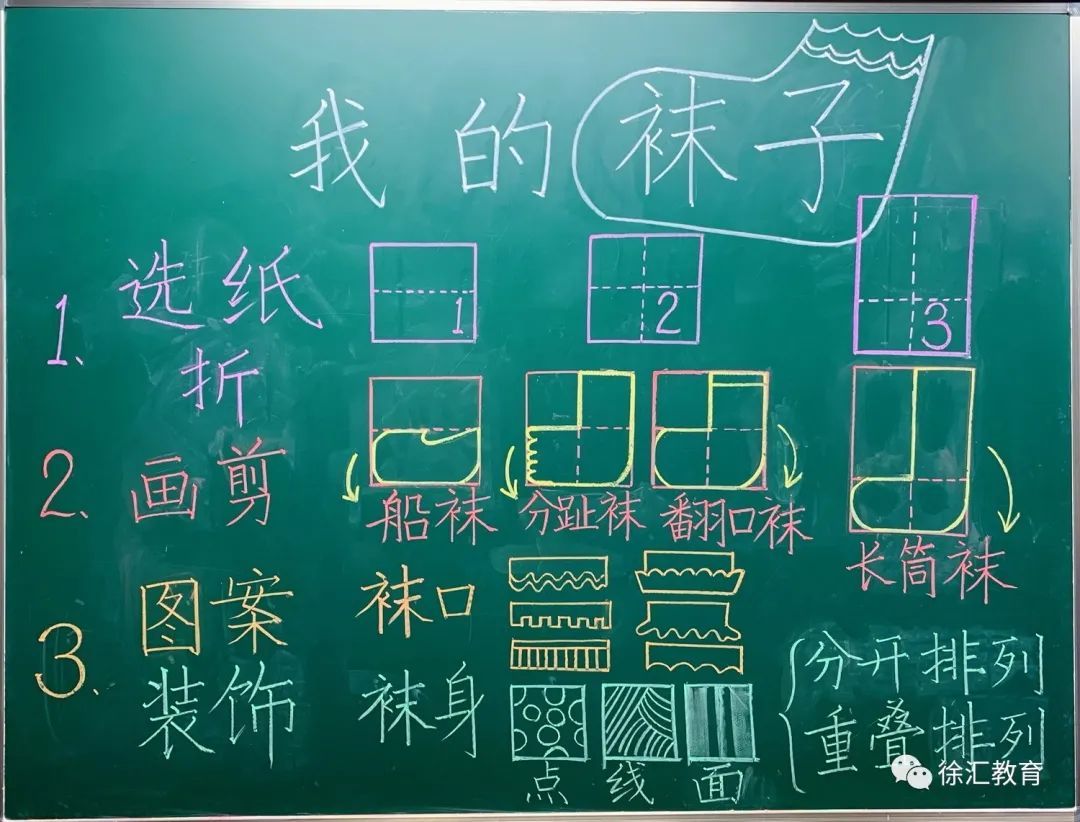 我的袜子
1. 选纸
折
1
2
3
2. 画剪
船袜
分趾袜
翻口袜
长筒袜
3. 图案
装饰
袜口
袜身
点 线 面
分开排列
重叠排列
徐汇教育